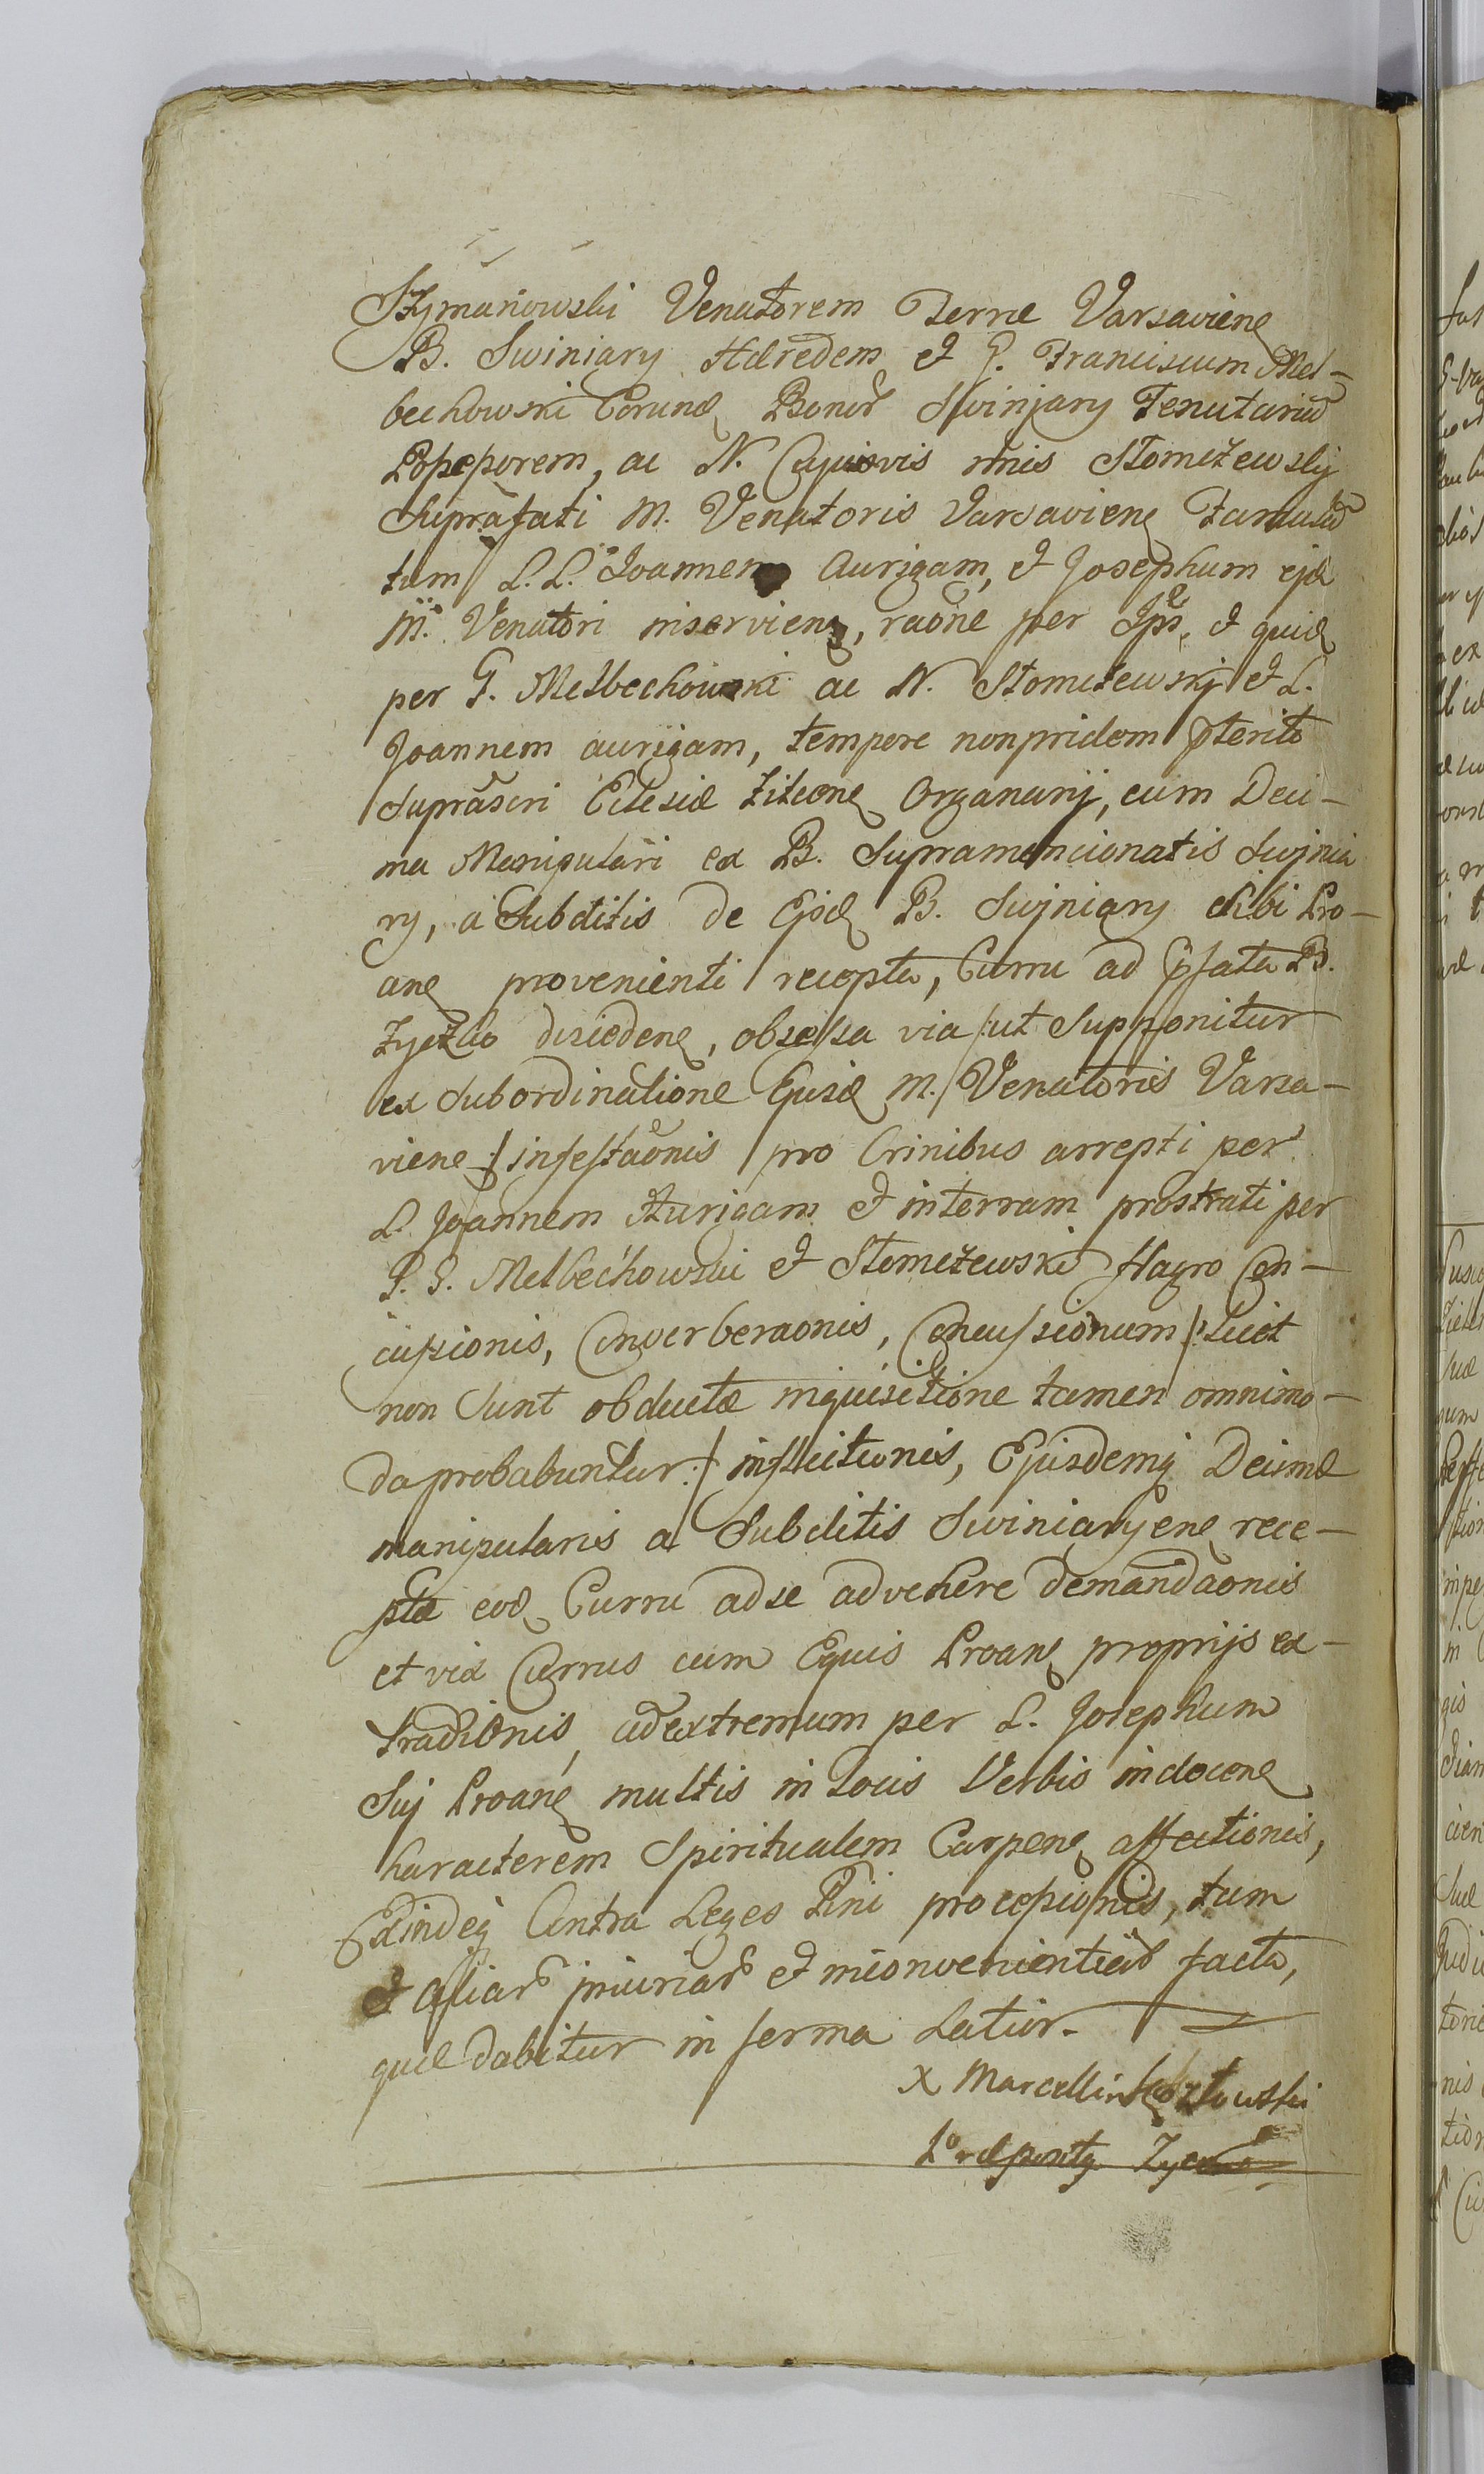 Szymanowski Venatorem Terræ Varsavienę
B. Swiniary Hæredem et G. Franciscum Mel-
bechowski Eorund Bonor Swiniary Tenutariu
Possessorem, ac N. Cujusvis nnis Stomeżewsky
Suprafati M. Venatoris Varsavienę Famulu
tum L. L. Joannem Aurigam, et Josephum ejd
M. Venatori inservienę, raone per Ips, et quidę
per G. Melbechowski ac N. Stomeżewskj et L.
Joannem aurigam, tempore nonpridem pterito
Suprascri Eclesiæ Organarij, cum Deci-
ma Manipulari ex B. Supramencionatis Swjnia
ry, a Subditis de Ejsd B. Swjniary sibi Pro-
anę provenienti recepta, Curru ad pfata B.
Zyczko discedenę, obsessa via /:ut Supponitur
ex Subordinatione Ejusd M. Venatoris Varsa-
vienę:/ infestaonis pro Crinibus arrepti per
L. Joannem Aurigam et interram prostrati per
G. G. Melbechowski et Stomeżewski flagro Con-
cussionis, Converberaonis, Concussionum /:licet
non Sunt obductæ inquisitione tamen omnimo-
da probabuntur:/ inflictionis, Ejusdemq Decimæ
manipularis a Subditis Swiniaryenę rece-
ptæ eod Curru ad se advehere demandaonis
et vix Currus cum Equis Proanę proprijs ex-
traditionis, ad extremum per L. Josephum
Suj Proanę multis in locis Verbis indecenę
haracterem Spiritualem Carpenę affectionis,
Exindeq Contra Leges Pni processionis, tum
et aliar iniuriar et inconvenientiar facta,
quæ dabitur in ferma Latior.
X Marcellin Kozłowski